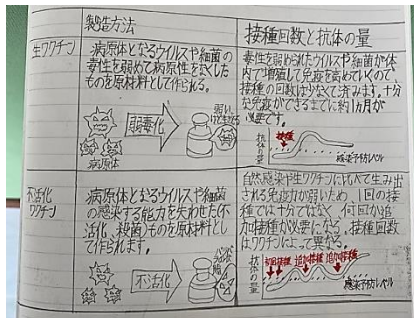 製造方法
接種回数と抗体の量
生ワクチン
病原体となるウイルスや細菌の
毒性を弱めて病原性をなくした
ものを原材料として作られる。
弱毒化
病原体
毒性を弱められたウイルスや細菌が体
内で増殖して免疫を高めていくので、
接種の回数は少なくて済みます。十分
な免疫ができるまでに約1ヵ月が
必要です。
抗体の量
接種
感染予防レベル
不活化
ワクチン
病原体となるウイルスや細菌
の感染する能力を失わせた(不
活化、殺菌)ものを原材料とし
て作られます。
不活化
自然感染や生ワクチンに比べて生み出
される免疫力が弱いため、1回の接
種では十分ではなく、何回か追
加接種が必要になる。接種回数
はワクチンによって異なる。
抗体の量
初回接種
追加接種
追加接種
感染予防レベル